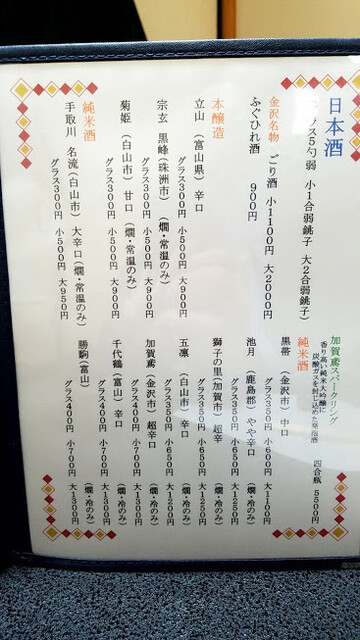 日本酒
グラス5勺弱 小1合弱銚子 大2合弱銚子)
金沢名物 ごり酒 小1100円 大2000円
ふぐひれ酒 900円
本醸造
立山 (富山県) 辛口
グラス300円 小500円 大900円
宗玄 黒峰(珠洲市) (燗・常温のみ)
グラス300円 小500円 大900円
菊姫 (白山市) 甘口 (燗・常温のみ)
グラス300円 小500円 大900円
純米酒
手取川 名流(白山市) 大辛口(燗・常温のみ)
グラス300円 小500円 大950円
加賀鳶スパークリング
香り高い純米大吟醸に
炭酸ガスを封じ込めた発泡酒
四合瓶 5500円
純米酒
黒帯 (金沢市) 中口
グラス350円 小600円 大1100円
池月 (鹿島郡) やや辛口 (燗・冷のみ)
グラス350円 小650円 大1250円
獅子の里(加賀市) 超辛 (燗・冷のみ)
グラス350円 小650円 大1250円
五凛 (白山市) 辛口 (燗・冷のみ)
グラス350円 小650円 大1200円
加賀鳶 (金沢市) 超辛口 (燗・冷のみ)
グラス400円 小700円 大1300円
千代鶴 (富山) 辛口 (燗・冷のみ)
グラス400円 小700円 大1300円
勝駒(富山) (燗・冷のみ)
グラス400円 小700円 大1300円